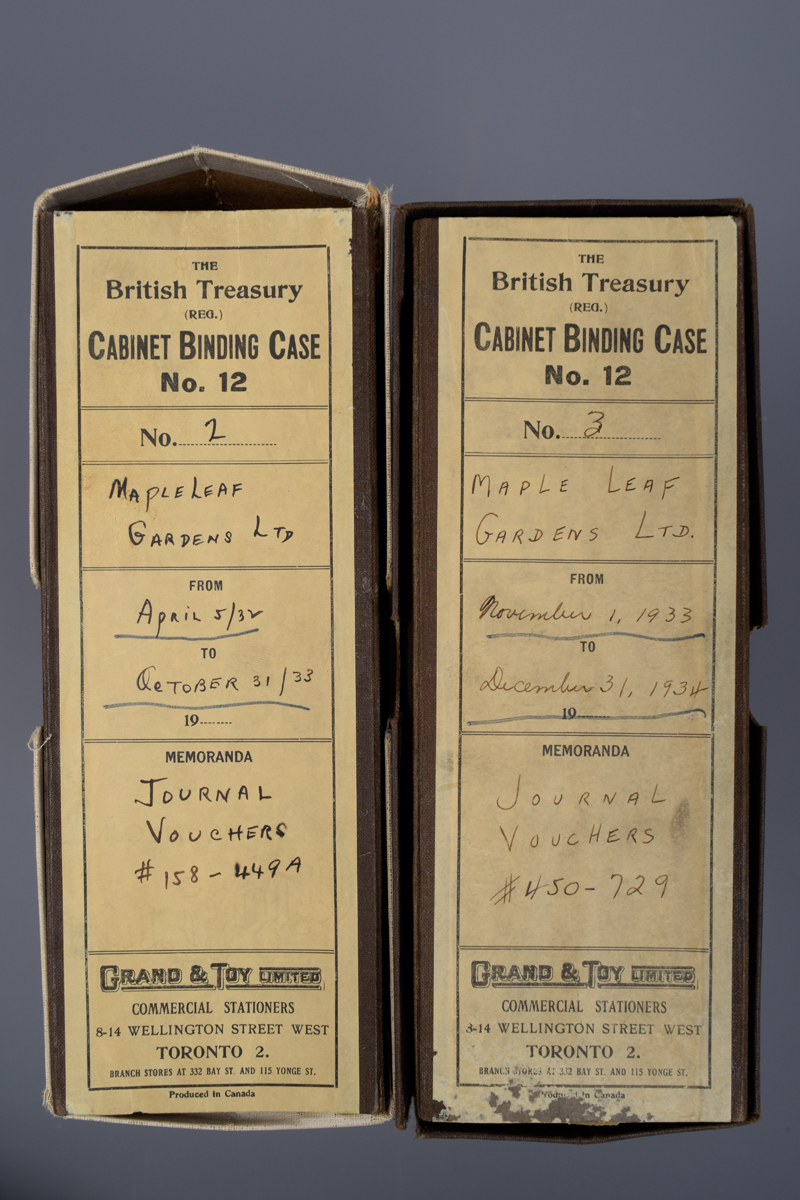 THE
British Treasury
(REG.)
CABINET BINDING CASE
No. 12
No. 2
MAPLE LEAF
GARDENS LTD
FROM
APRIL 5/32
TO
OCTOBER 31/33
19
MEMORANDA
JOURNAL
VOUCHERS
# 158 - 449A
GRAND & TOY LIMITED
COMMERCIAL STATIONERS
8-14 WELLINGTON STREET WEST
TORONTO 2.
BRANCH STORES AT 332 BAY ST. AND 115 YONGE ST.
Produced in Canada
THE
British Treasury
(REG.)
CABINET BINDING CASE
No. 12
No. 3
MAPLE LEAF
GARDENS LTD.
FROM
November 1, 1933
TO
December 31, 1934
19
MEMORANDA
JOURNAL
VOUCHERS
#450 - 729
GRAND & TOY LIMITED
COMMERCIAL STATIONERS
8-14 WELLINGTON STREET WEST
TORONTO 2.
BRANCH STORES AT 332 BAY ST. AND 115 YONGE ST.
Produced in Canada